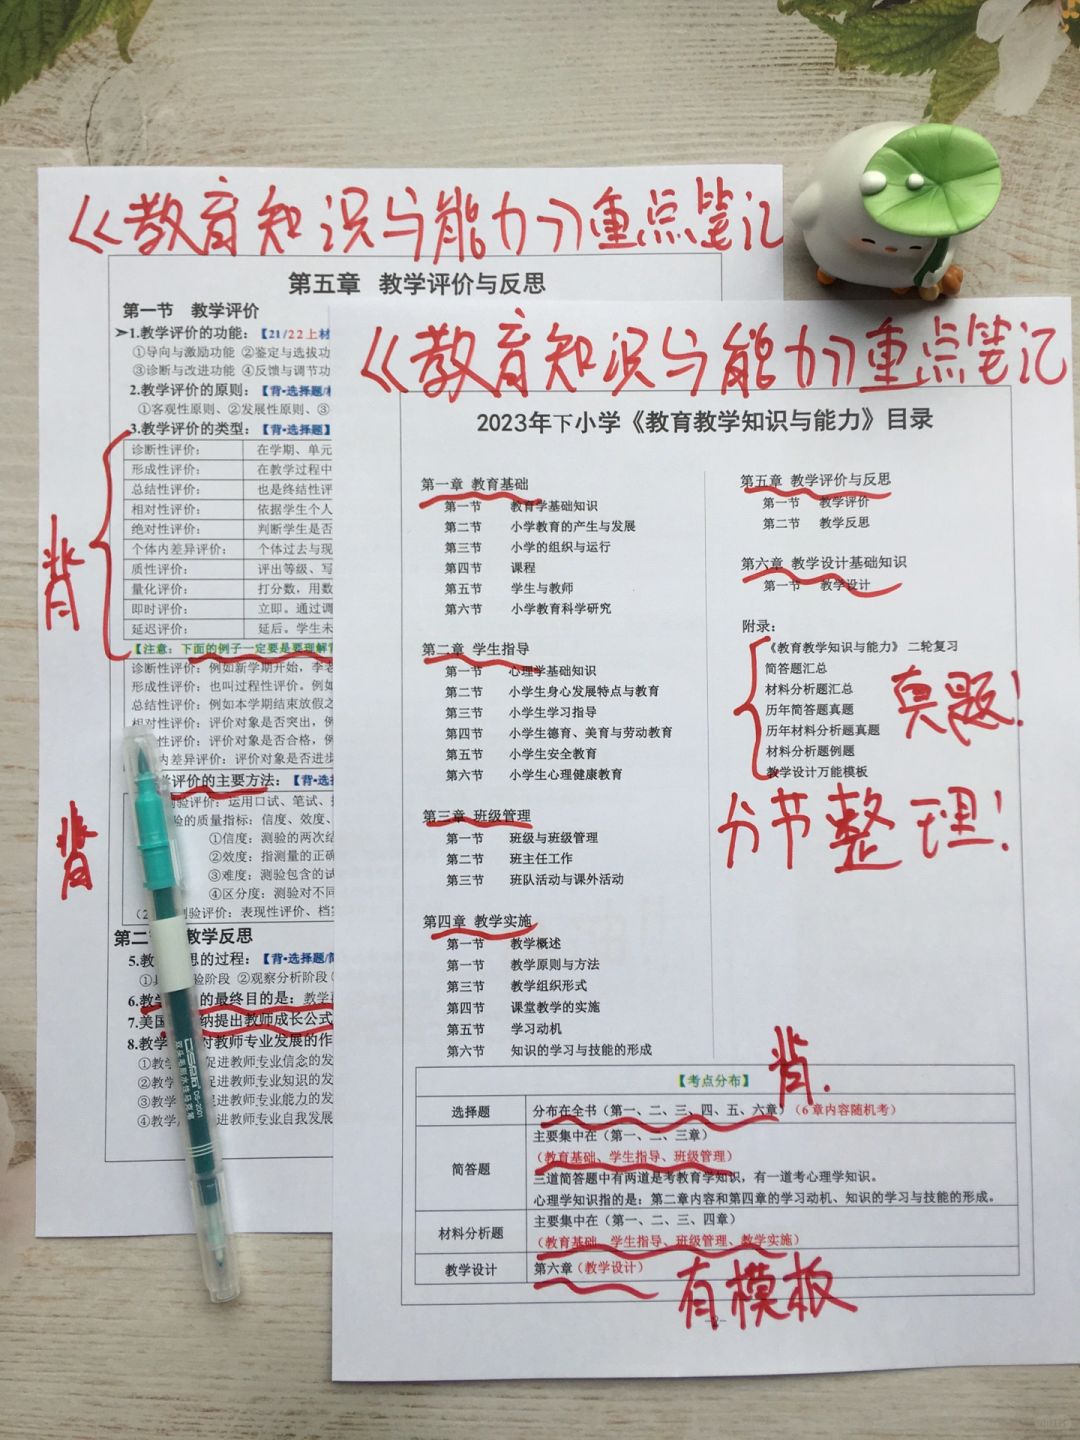 《教育知识与能力》重点笔记
第五章 教学评价与反思
第一节 教学评价
➢1.教学评价的功能：【21/22上材
①导向与激励功能 ②鉴定与选拔功
③诊断与改进功能 ④反馈与调节功
2.教学评价的原则：【背•选择题/
①客观性原则、②发展性原则、③
3.教学评价的类型：【背•选择题】
诊断性评价： 在学期、单元
形成性评价： 在教学过程中
总结性评价： 也是终结性评
相对性评价： 依据学生个人
绝对性评价： 判断学生是否
个体内差异评价： 个体过去与现
质性评价： 评出等级、写
量化评价： 打分数，用数
即时评价： 立即。通过调
延迟评价： 延后。学生未
背
【注意：下面的例子一定要是要理解
诊断性评价：例如新学期开始，李老
形成性评价：也叫过程性评价。例如
总结性评价：例如本学期结束放假之
相对性评价：评价对象是否突出，例
性评价：评价对象是否合格，例
内差异评价：评价对象是否进步
评价的主要方法：【背•选择
验评价：运用口试、笔试、
验的质量指标：信度、效度、
①信度：测验的两次结
②效度：指测量的正确
③难度：测验包含的试
④区分度：测验对不同
背
（2 测验评价：表现性评价、档案
第二 教学反思
5.教 思的过程：【背•选择题/简
①具 验阶段 ②观察分析阶段
6.教学 的最终目的是：教学
7.美国 纳提出教师成长公式
8.教学 对教师专业发展的作
①教学 促进教师专业信念的发
②教 促进教师专业知识的发
③教 促进教师专业能力的发
④教学 进教师专业自我发展
《教育知识与能力》重点笔记
2023年下小学《教育教学知识与能力》目录
第一章 教育基础
第一节 教育学基础知识
第二节 小学教育的产生与发展
第三节 小学的组织与运行
第四节 课程
第五节 学生与教师
第六节 小学教育科学研究
第二章 学生指导
第一节 心理学基础知识
第二节 小学生身心发展特点与教育
第三节 小学生学习指导
第四节 小学生德育、美育与劳动教育
第五节 小学生安全教育
第六节 小学生心理健康教育
第三章 班级管理
第一节 班级与班级管理
第二节 班主任工作
第三节 班队活动与课外活动
第四章 教学实施
第一节 教学概述
第一节 教学原则与方法
第三节 教学组织形式
第四节 课堂教学的实施
第五节 学习动机
第六节 知识的学习与技能的形成
第五章 教学评价与反思
第一节 教学评价
第二节 教学反思
第六章 教学设计基础知识
第一节 教学设计
附录：
《教育教学知识与能力》 二轮复习
简答题汇总
材料分析题汇总
历年简答题真题
历年材料分析题真题
材料分析题例题
教学设计万能模板
真题！
分节整理！
背.
【考点分布】
选择题 分布在全书（第一、二、三、四、五、六章）（6章内容随机考）
简答题 主要集中在（第一、二、三章）
（教育基础、学生指导、班级管理）
三道简答题中有两道是考教育学知识，有一道考心理学知识。
心理学知识指的是：第二章内容和第四章的学习动机、知识的学习与技能的形成。
材料分析题 主要集中在（第一、二、三、四章）
（教育基础、学生指导、班级管理、教学实施）
教学设计 第六章（教学设计）
有模板